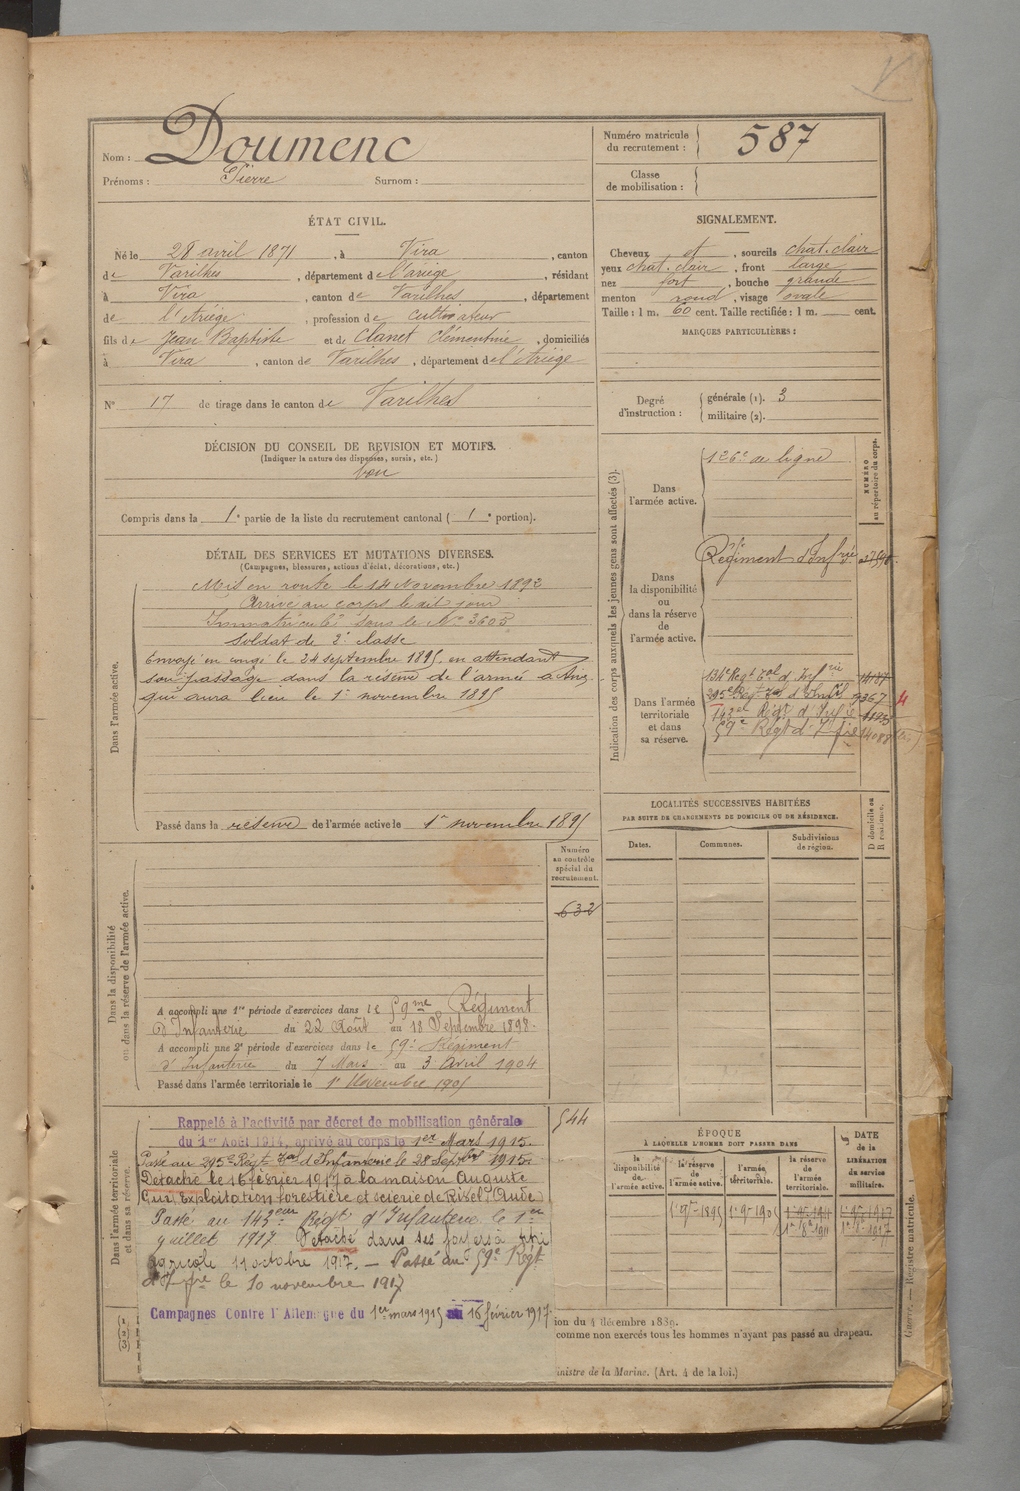 Nom : Doumenc
Prénoms : Pierre Surnom :
Numéro matricule du recrutement : 587
Classe de mobilisation :
ÉTAT CIVIL.
Né le 28 avril 1871, à Vira, canton
de Varilhes, département de l'ariège, résidant
à Vira, canton de Varilhes, département
de l'Ariège, profession de cultivateur
fils de Jean Baptiste et de Clanet Clémentine, domiciliés
à Vira, canton de Varilhes, département de l'Ariège
N° 17 de tirage dans le canton de Varilhes
SIGNALEMENT.
Cheveux et, sourcils chat. clair
yeux chat. clair, front large
nez fort, bouche grande
menton rond, visage ovale
Taille : 1 m. 60 cent. Taille rectifiée : 1 m. cent.
MARQUES PARTICULIÈRES :
Degré d'instruction : générale (1). 3
militaire (2).
DÉCISION DU CONSEIL DE REVISION ET MOTIFS.
(Indiquer la nature des dispenses, sursis, etc.)
bon
Compris dans la 1e partie de la liste du recrutement cantonal ( 1e portion).
DÉTAIL DES SERVICES ET MUTATIONS DIVERSES.
(Campagnes, blessures, actions d'éclat, décorations, etc.)
Dans l'armée active.
Mis en route le 14 Novembre 1892
Arrivé au corps le dit jour
Immatriculé sous le N° 3605
Soldat de 2e classe
Envoyé en congé le 24 septembre 1895, en attendant
son passage dans la réserve de l'armée active
qui aura lieu le 1er novembre 1895
Passé dans la réserve de l'armée active le 1er novembre 1895
Indication des corps auxquels les jeunes gens sont affectés (3).
NUMÉRO au répertoire du corps.
Dans l'armée active.
126e de ligne
Dans la disponibilité ou dans la réserve de l'armée active.
Régiment d'Infrie
Dans l'armée territoriale et dans sa réserve.
134e Régt Tal d'Infrie
295e Régt Tal d'Infie 9367
143e Régt d'Infie
59e Régt d'Ifie 14088
LOCALITÉS SUCCESSIVES HABITÉES
PAR SUITE DE CHANGEMENTS DE DOMICILE OU DE RÉSIDENCE.
Dates. Communes. Subdivisions de région.
D domicile ou R résidence.
Dans la disponibilité ou dans la réserve de l'armée active.
Numéro au contrôle spécial du recrutement.
632
A accompli une 1re période d'exercices dans le 59me Régiment
d'Infanterie du 22 Août au 18 Septembre 1898.
A accompli une 2e période d'exercices dans le 59e Régiment
d'Infanterie du 7 Mars au 3 Avril 1904
Passé dans l'armée territoriale le 1er Novembre 1905
544
Dans l'armée territoriale et dans sa réserve.
Rappelé à l'activité par décret de mobilisation générale
du 1er Août 1914, arrivé au corps le 1er Mars 1915.
Passé au 295e Régt Tal d'Infanterie le 28 Septbre 1915.
Détaché le 16 février 1917 à la maison Auguste
Exploitation forestière et scierie de (Aude)
Passé au 143eme Régt d'Infanterie le 1er
Juillet 1917 Détaché dans ses foyers à titre
agricole 11 octobre 1917. — Passé au 59e Régt
d'Ifie le 10 novembre 1917
Campagnes Contre l'Allemagne du 1er mars 1915 au 16 février 1917.
ÉPOQUE
À LAQUELLE L'HOMME DOIT PASSER DANS
la disponibilité de l'armée active. la réserve de l'armée active. l'armée territoriale. la réserve de l'armée territoriale.
DATE de la LIBÉRATION du service militaire.
1er 9bre 1895 1er 9bre 1905 1er 9bre 1911 1er 9bre 1917
1er 8bre 1911 1er 8bre 1917
ion du 4 décembre 1889.
comme non exercés tous les hommes n'ayant pas passé au drapeau.
inistre de la Marine. (Art. 4 de la loi.)
Guerre. — Registre matricule.